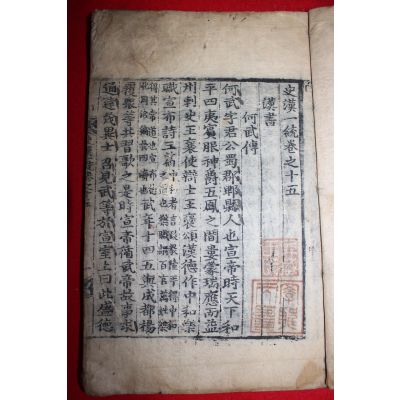 史漢一統卷之十五
漢書
何武傳
何武字君公蜀郡郫縣人也宣帝時天下和
平四夷賓服神爵五鳳之間婁蒙瑞應而益
州刺史王襄使辯士王褒頌漢德作中和樂
職宣布詩三篇
武年十四五與成都楊
覆衆等共習歌之是時宣帝循武帝故事求
通達茂異士召見武等於宣室上曰此盛德